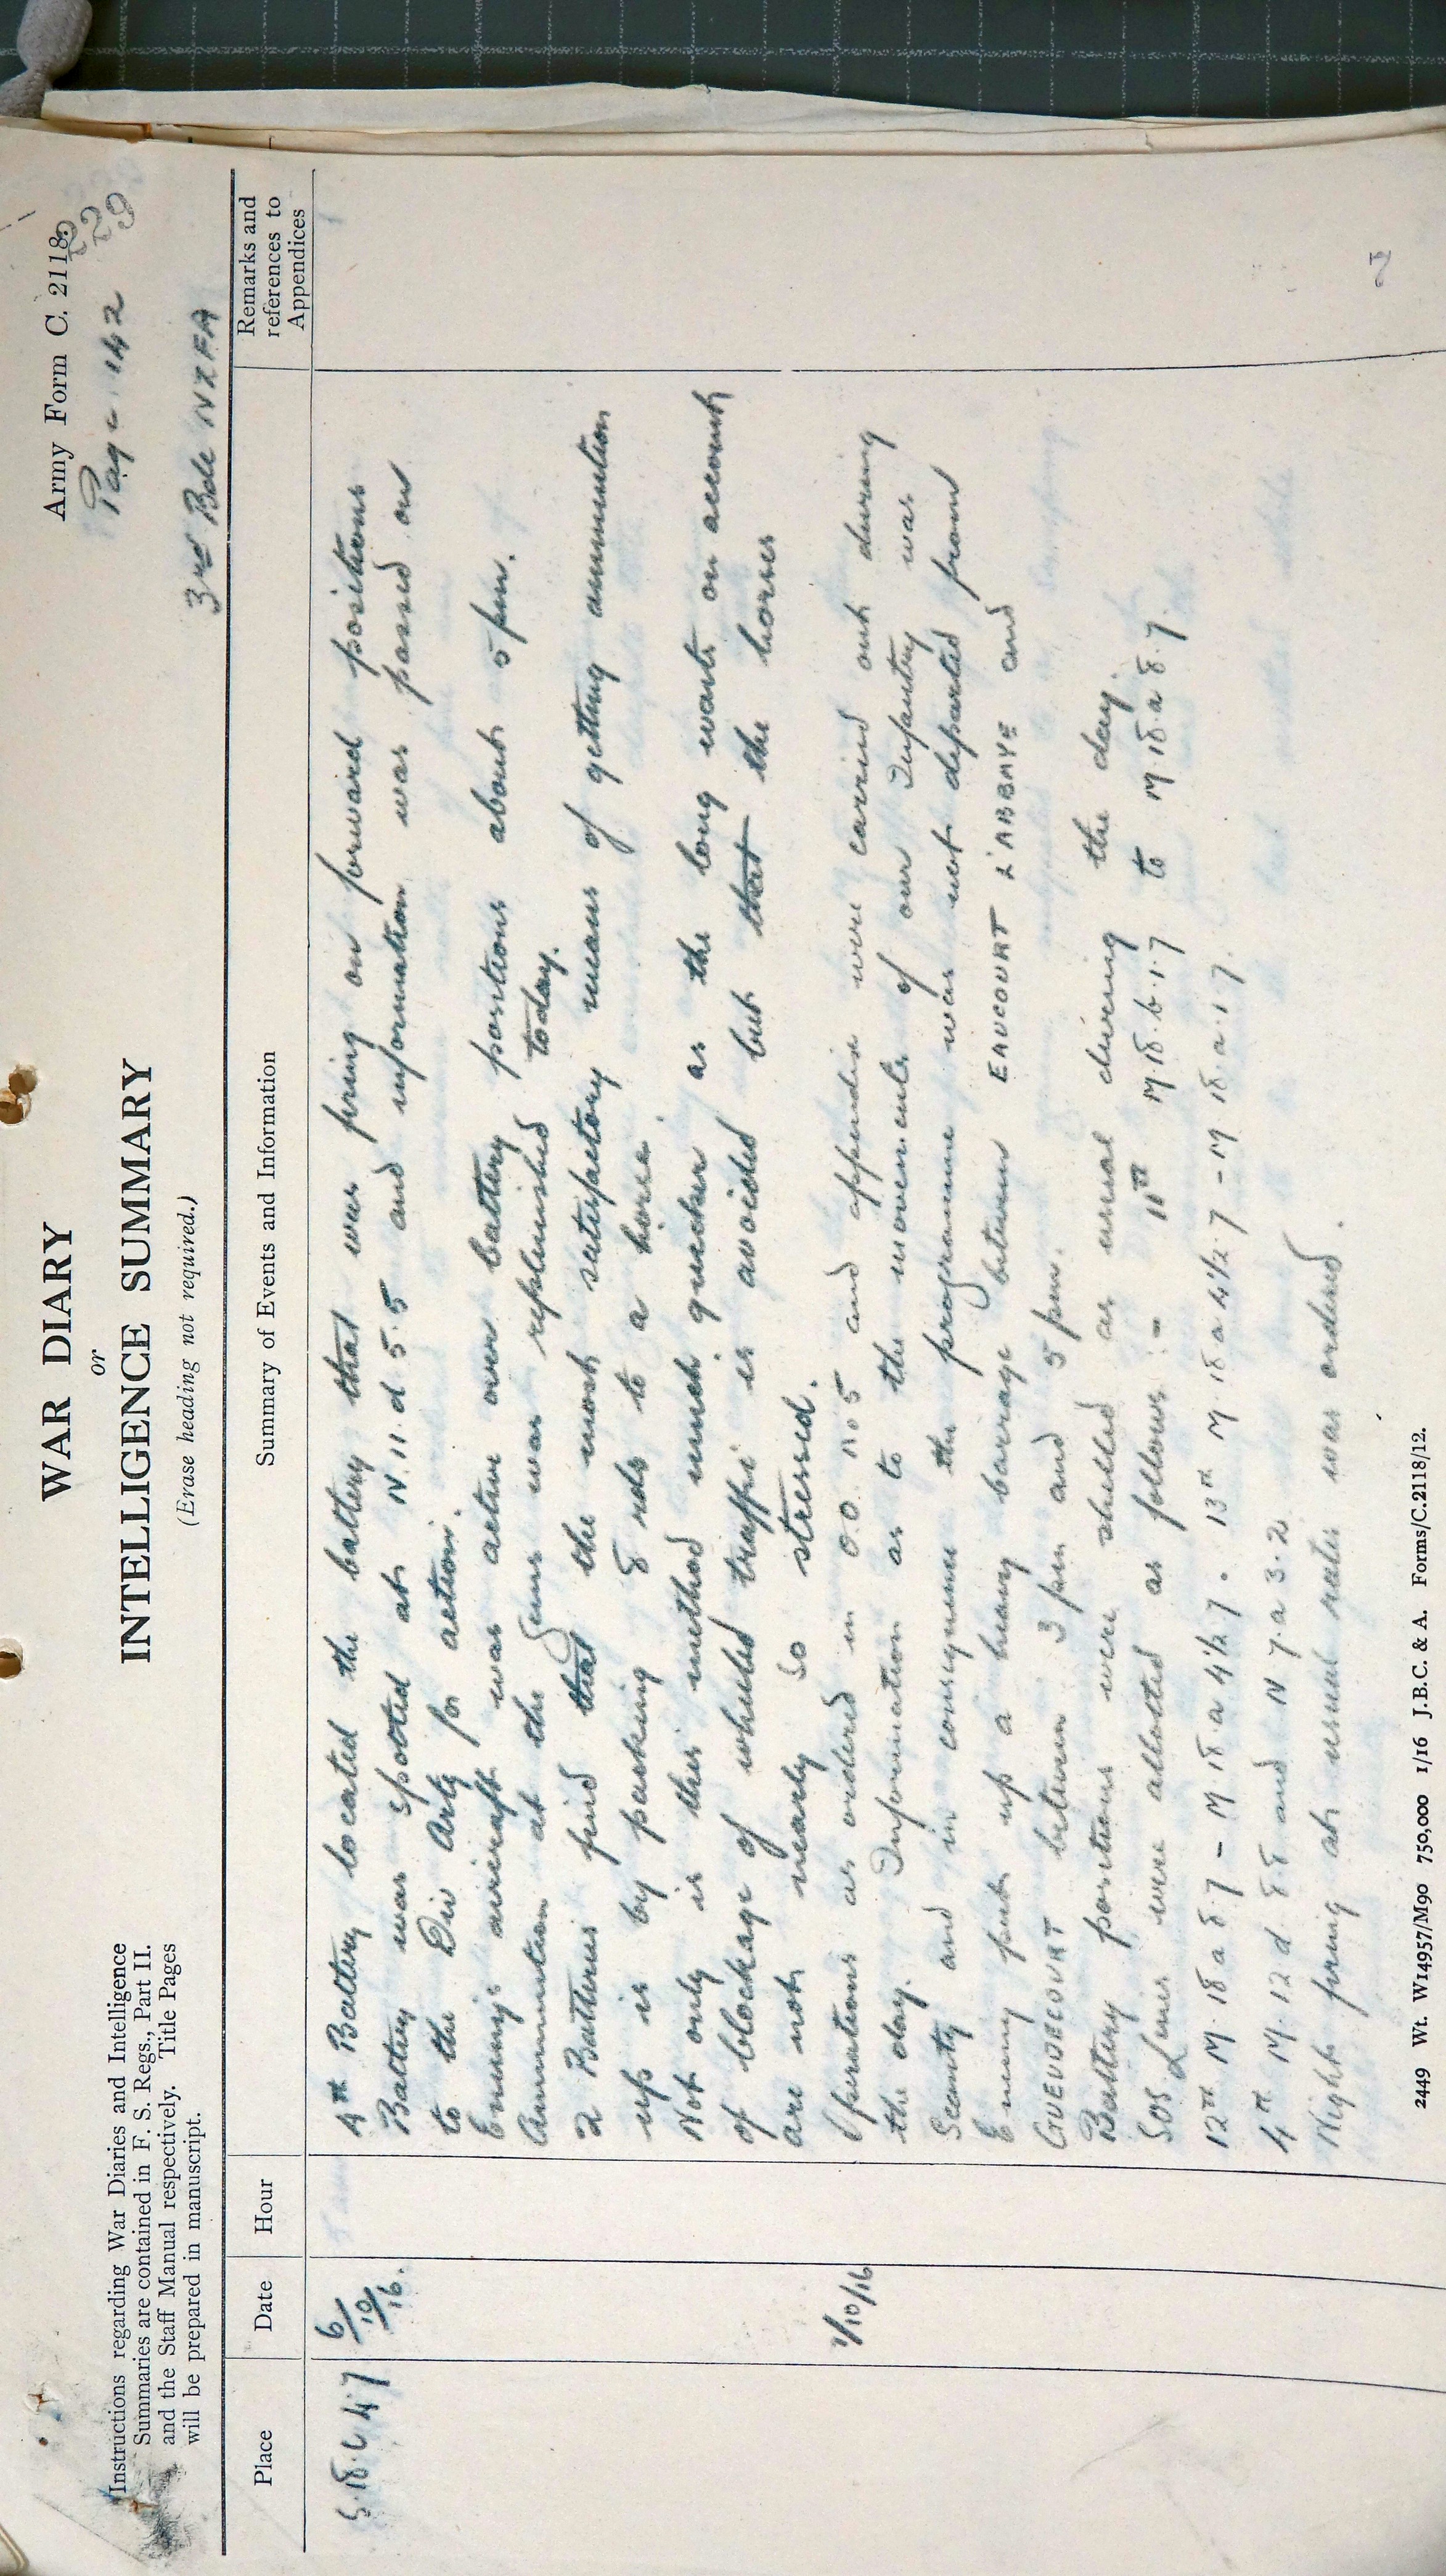 Army Form C. 2118.
229
Page 142
WAR DIARY
or
INTELLIGENCE SUMMARY
(Erase heading not required.)
3rd Bde NZFA
Instructions regarding War Diaries and Intelligence
Summaries are contained in F. S. Regs., Part II.
and the Staff Manual respectively. Title Pages
will be prepared in manuscript.
Place Date Hour Summary of Events and Information Remarks and references to Appendices
S.18.c.4.7 6/10/16. 4th Battery located the battery that was firing on forward positions
Battery was spotted at N.11.d.5.5 and information was passed on
to the Div Arty for action.
Enemy's aircraft was active over battery positions about 5 pm.
Ammunition at the Guns was replenished today.
2 Batteries find that the most satisfactory means of getting ammunition
up is by packing 8 rds to a horse.
Not only is this method much quicker as the long waits on account
of blockage of wheeled traffic is avoided but that the horses
are not nearly so stressed.
7/10/16 Operations as ordered in O.O. No 5 and appendix were carried out during
the day. Information as to the movements of our Infantry was
Scanty and in consequence the programme was not departed from
Enemy put up a heavy barrage between EAUCOURT L'ABBAYE and
GUEUDECOURT between 3 pm and 5 pm.
Battery positions were shelled as usual during the day.
SOS Lines were allotted as follows :- 11th M.18.b.1.7 to M.18.a.8.7.
12th M.18 a 8.7 - M.18.a 4½ 7. 13th M.18 a 4½.7 - M 18.a.1.7.
4th M.12 d 8 8 and N 7.a 3.2
Night firing at usual rates was ordered.
2449 Wt. W14957/M90 750,000 1/16 J.B.C. & A. Forms/C.2118/12.